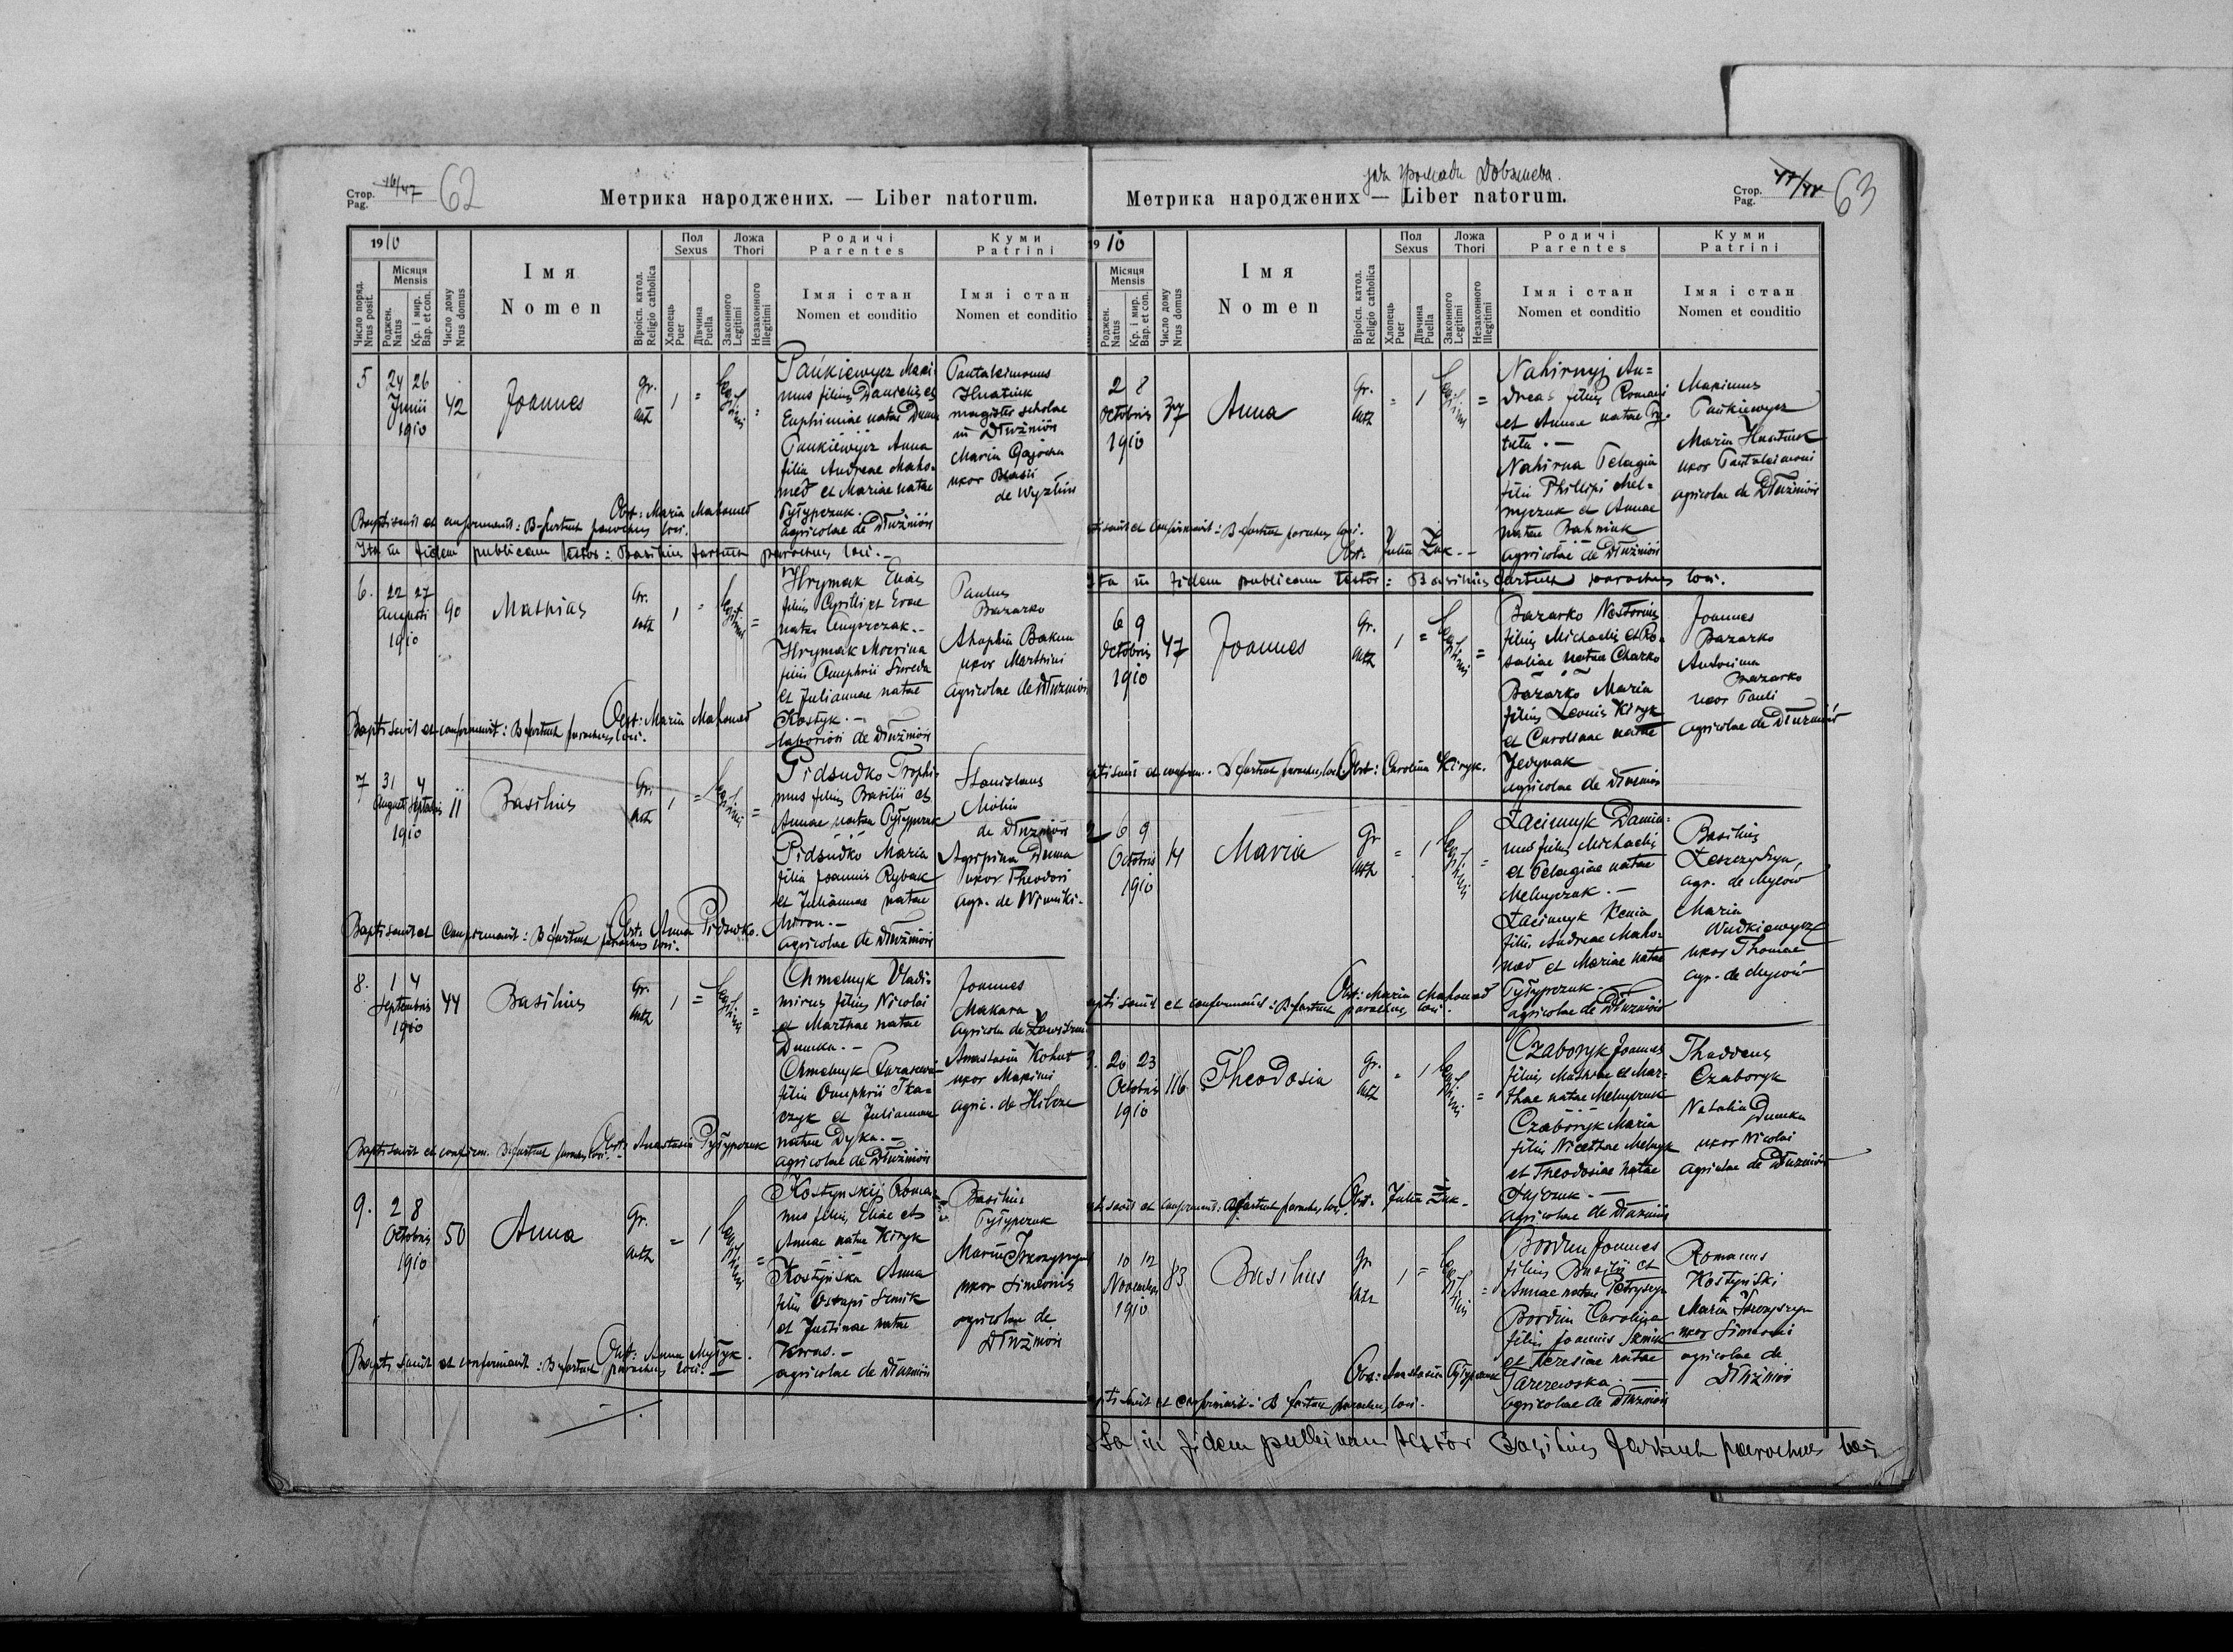 Стор.
Pag.
16/47
62
Метрика народжених. — Liber natorum.
1910
Число поряд.
Nrus posit.
Місяця
Mensis
Роджен.
Natus
Кр. і мир.
Bap. et con.
Число дому
Nrus domus
Імя
Nomen
Віроісп. катол.
Religio catholica
Пол
Sexus
Хлопець
Puer
Дівчина
Puella
Ложа
Thori
Законного
Legitimi
Незаконного
Illegitimi
Родичі
Parentes
Імя і стан
Nomen et conditio
Куми
Patrini
Імя і стан
Nomen et conditio
5
24 26
Junii
1910
42
Joannes
Gr.
cath
1
=
Legitimi
=
Pańkiewycz Maxi-
mus filius Danielis et
Euphimiae natae Duma
Pańkiewycz Anna
filia Andreae Maho-
med et Mariae natae
Pyłypczuk.
agricolae de Dłużniów
Pantaleimonus
Hnatiuk
magister scholae
in Dłużniów
Maria
uxor Blasii
de Wyżłów
Obst: Maria Mahomed
Baptisavit et confirmavit: B. Fartuch parochus loci.
Ita in fidem publicam testor: Basilius Fartuch parochus loci.—
6.
22 27
Augusti
1910
90
Mathias
Gr.
cath
1
=
Legitimi
=
Hrymak Elias
filius Cyrilli et Evae
natae
Hrymak Macrina
filia Onuphrii
et Juliannae natae
Kostyk.—
laboriosi de Dłużniów
Paulus
Bazarko
Ahaphia Bakun
uxor Martini
agricolae de Dłużniów
Obst: Maria Mahomed
Baptisavit et confirmavit: B. Fartuch parochus loci.
7
31 4
Augusti Septembris
1910
11
Basilius
Gr.
cath
1
=
Legitimi
=
Pidsudko Trophi-
mus filius Basilii et
Annae natae Pyłypczuk
Pidsudko Maria
filia Joannis Rybak
et Juliannae natae
Miron.—
agricolae de Dłużniów
Stanislaus
de Dłużniów
Agripina Duma
uxor Theodori
agr. de Winniki.
Obst. Anna Pidsudko.
Baptisavit et confirmavit: B. Fartuch parochus loci.
8.
1 4
Septembris
1910
44
Basilius
Gr.
cath
1
=
Legitimi
=
Chmelnyk Vladi-
mirus filius Nicolai
et Marthae natae
Dumka.—
Chmelnyk
filia Onuphrii Tka-
czyk et Juliannae
natae Dyka.—
agricolae de Dłużniów
Joannes
Makara
agricola de
Anastasia Kohut
uxor Maximi
agric. de Hilcze
Obst: Anastasia Pyłypczuk
Baptisavit et confirm. B. Fartuch parochus loci.
9.
2 8
Octobris
1910
50
Anna
Gr.
cath
=
1
Legitimi
=
Kostynskij Roma-
nus filius Eliae et
Annae natae Kiryk
Kostyńska Anna
filia Ostapi Semik
et Justinae natae
Karas.—
agricolae de Dłużniów
Basilius
Pyłypczuk
Maria
uxor Simeonis
agricolae de
Dłużniów
Obst: Anna Mychyk.
Baptisavit et confirmavit: B. Fartuch parochus loci.—
для громади Dobromeba.
Метрика народжених — Liber natorum.
Стор.
Pag.
63
1910
Місяця
Mensis
Роджен.
Natus
Кр. і мир.
Bap. et con.
Число дому
Nrus domus
Імя
Nomen
Віроісп. катол.
Religio catholica
Пол
Sexus
Хлопець
Puer
Дівчина
Puella
Ложа
Thori
Законного
Legitimi
Незаконного
Illegitimi
Родичі
Parentes
Імя і стан
Nomen et conditio
Куми
Patrini
Імя і стан
Nomen et conditio
2 8
Octobris
1910
37
Anna
Gr.
cath
=
1
Legitimi
Nahirnyj An-
dreas filius Romani
et Annae natae
Nahirna Pelagia
filia Phillipi Mel-
nyczuk et Annae
natae Bahniuk
agricolae de Dłużniów
Maximus
Pańkiewycz
Maria Hnatiuk
uxor Pantaleimoni
agricolae de Dłużniów
tisavit et confirmavit: B. Fartuch parochus loci.
Obst. Julia Żuk.—
Ita in fidem publicam testor: Basilius Fartuch parochus loci.
6 9
Octobris
1910
47
Joannes
Gr.
cath
1
=
Legitimi
=
Bazarko Nestorius
filius Michaelis et Ro-
saliae natae Charko
Bazarko Maria
filia Leonis Kiryk
et Carolinae natae
Jedynak
agricolae de Dłużniów
Joannes
Bazarko
Antonina
Bazarko
uxor Pauli
agricolae de Dłużniów
ptisavit et confirm. B. Fartuch parochus loci. Obst: Carolina Kiryk.
6 9
Octobris
1910
14
Maria
Gr
cath
=
1
Legitimi
=
Łacinnyk Damia-
nus filius Michaelis
et Pelagiae natae
Melnyczuk.—
Łacinnyk Xenia
filia Andreae Maho-
med et Mariae natae
Pyłypczuk.—
agricolae de Dłużniów
Basilius
Leszczyszyn,
agr. de Myców
Maria
Wudkiewycz
uxor Thomae
agr. de Myców
Obst: Maria Mahomed
aptisavit et confirmavit: B. Fartuch parochus loci.
20 23
Octobris
1910
116
Theodosia
Gr.
cath
=
1
Legitimi
=
Czaboryk Joannes
filius Mathiae et Mar-
thae natae Melnyczuk
Czaboryk Maria
filia Nicethae Melnyk
et Theodosiae natae
agricolae de Dłużniów
Thaddeus
Czaboryk
Natalia Dumka
uxor Nicolai
agricolae de Dłużniów
tisavit et confirmavit: B. Fartuch parochus loci. Obst. Julia Żuk.
10 12
Novembris
1910
83
Basilius
Gr
cath
1
=
Legitimi
=
Bordun Joannes
filius Basilii et
Annae natae Petryszyn
Bordun Carolina
filia Joannis Semik
et Teresiae natae
Tarczewska.—
agricolae de Dłużniów
Romanus
Kostyński
Maria
uxor Simeonis
agricolae de
Dłużniów
Obst: Anastasia Pyłypczuk
ptisavit et confirmavit: B. Fartuch parochus loci.
Ita in fidem publicam testor Basilius Fartuch parochus loci